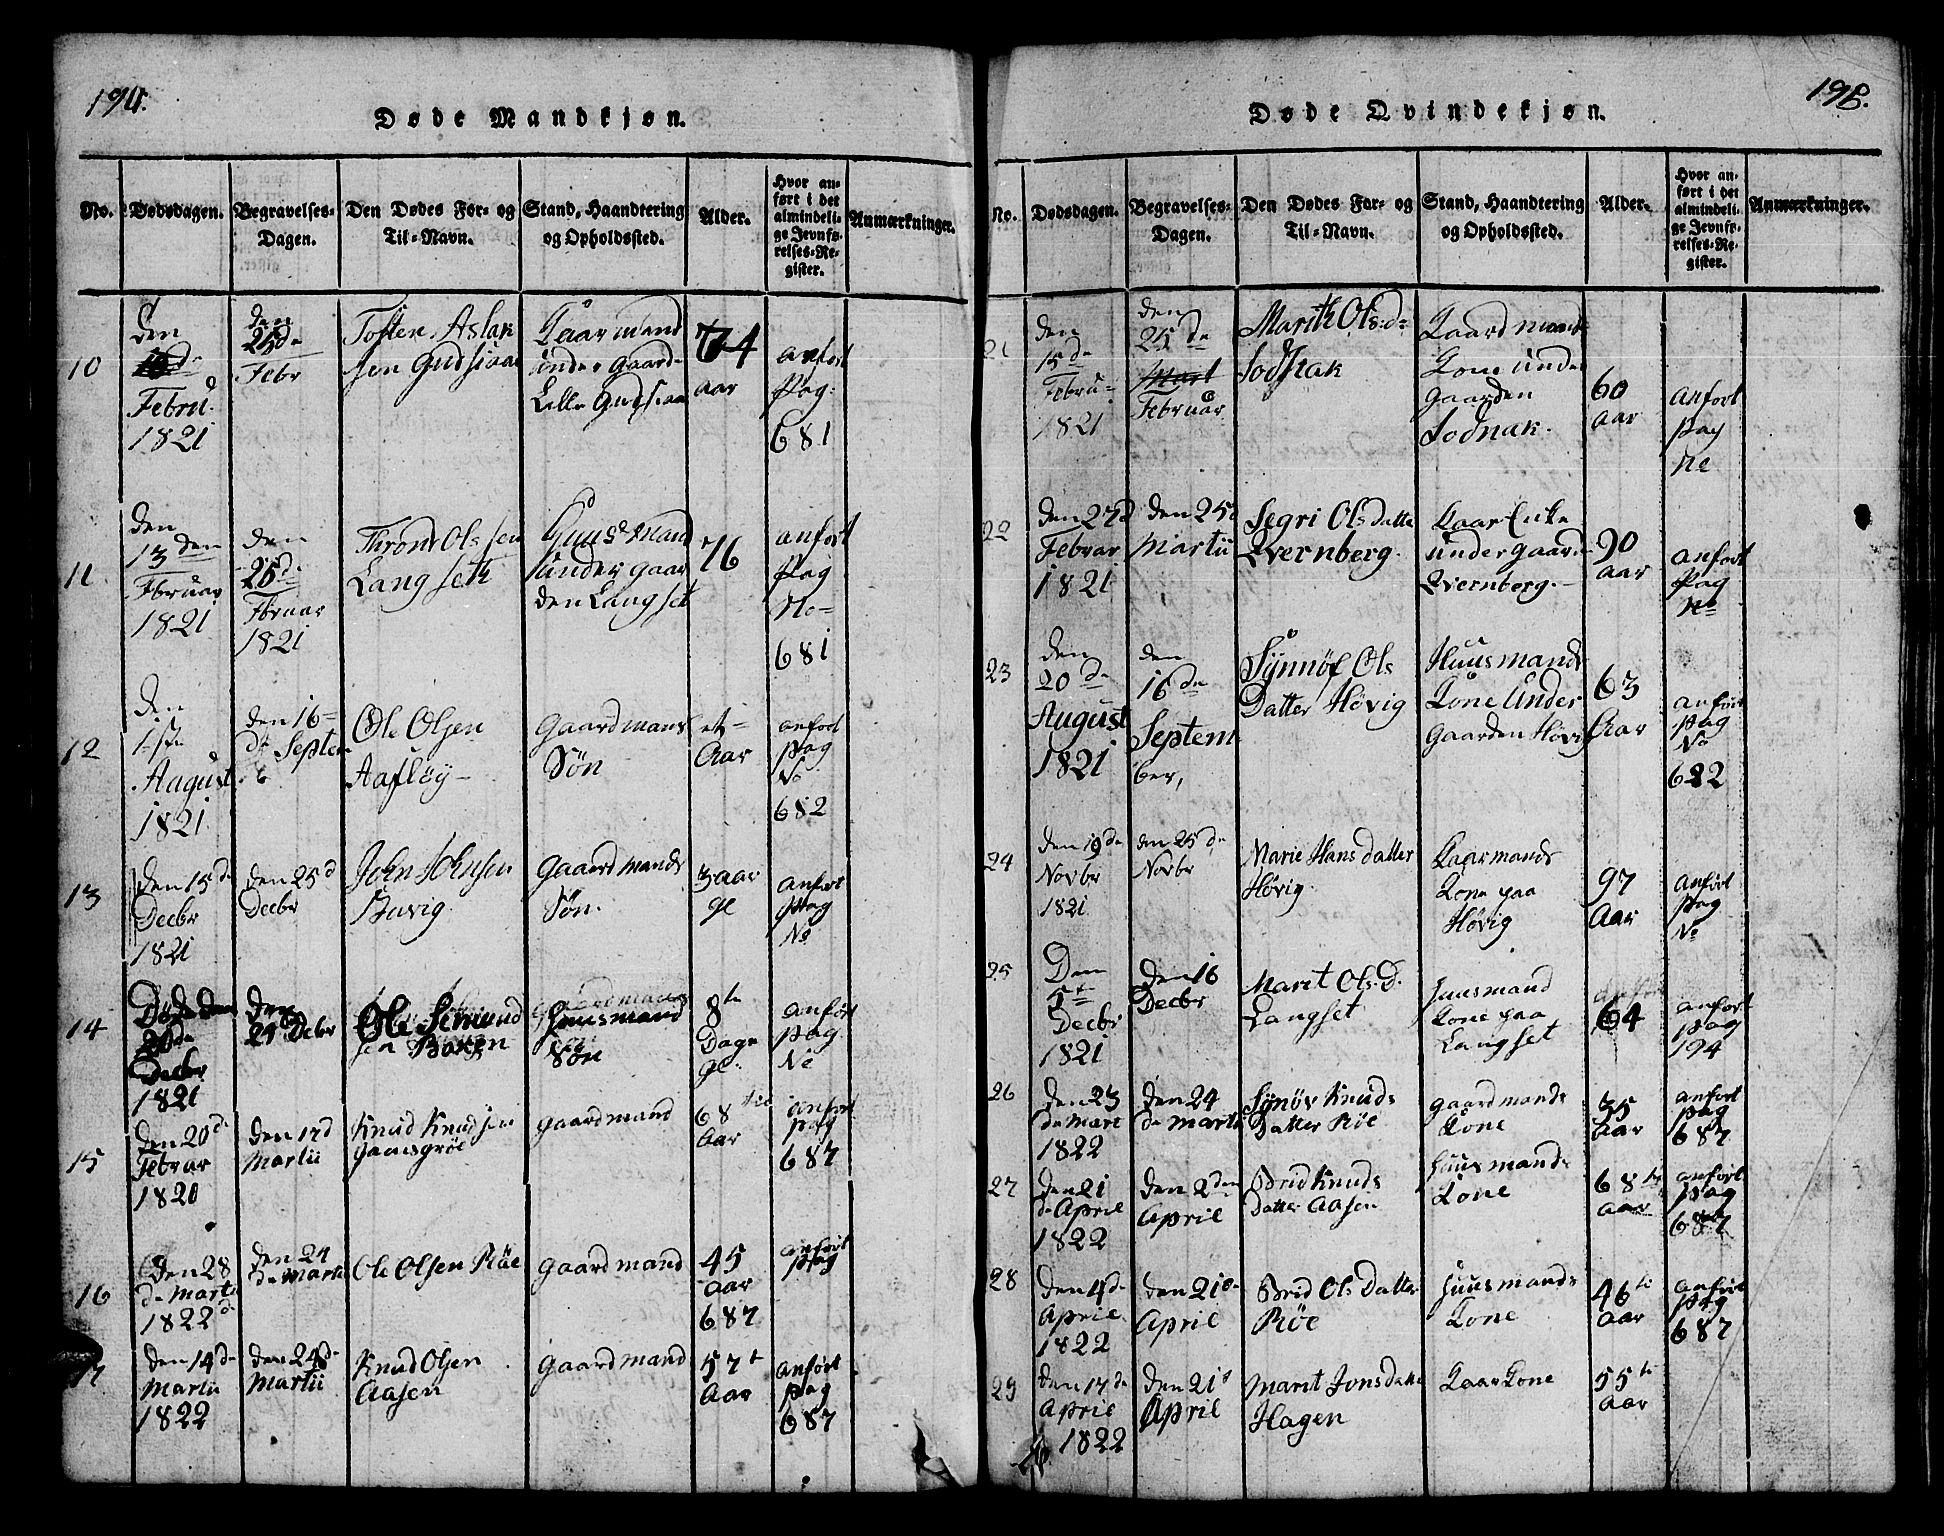 194.
Døde Mandkjøn.
No. Dødsdagen. Begravelses-Dagen. Den Dødes For- og Til-Navn. Stand, Haandtering og Opholdssted. Alder. Hvor anført i det almindelige Jevnførelses-Register. Anmærkninger.
10
den
Febru.
1821
den
25d
Febr
Tosten Aslak
sen Gudsiaa
Kaarmand
under Gaard
Lille Gudsiaa
74
aar
anført
Pag:
681
11
den
13den
Februar
1821
den
25d
Februar
1821
Thrond Olssen
Langseth
Huusmand
under gaar
den Langset
76
anført
Pag
No
681
12
den
1ste
August
1821
den 16
de Septem
b
Ole Olsen
Aafløy
Gaardmans
Søn
et
Aar
anført
pag
No
682
13
den 15d
Decbr
1821
den 25d
Decbr
John Johnsen
Buvig
Gaardmands
Søn.
3 aar
gl
anført
pag
No
14
Døde den
20de
Decbr
1821
den
29 Debr
Ole Semund
sen Baken
Huusmand
Søn
8te
Dage
gl.
anført
pag
No
15
den 20d
Febrar
1820
den 17d
Martii
Knud Knudsen
Gaasgrøe
gaardmand
68
Aar
anført
pag
687
16
den 28
de Martii
1822
den 24
de Martii
Ole Olsen Røe
gaardmand
45
aar
687
anført
pag
17
den 14d
Martii
1822
den 24d
Martii
Knud Olsen
Aasen
gaardmand
57t
Aar
anført
pag
687
198.
Døde Qvindekjøn.
No. Dødsdagen. Begravelses-Dagen. Den Dødes For- og Til-Navn. Stand, Haandtering og Opholdssted. Alder. Hvor anført i det almindelige Jevnførelses-Register. Anmærkninger.
21
den
15de
Febru-
1821
den
25de
Mart
Februar
Marith Ols:d
Sodnak
Gaardmand
Kone under
Gaarden
Sodnak.
60
aar
anført
pag
No
22
den 27d
Februar
1821
den 25d
Martii
Segri Olsdatte
Qvernberg.
Kaar Enke
under gaard
Qvernberg.
90
aar
anført
Pag
No
23
den
20de
August
1821
den
16de
Septem
ber,
Synnøf Ols
Datter Høvig
Huusmands
Kone Under
Gaarden Høvig
63
Aar
anført
pag
No
622
24
den 19de
Novbr
1821
den 25de
Novbr
Marie Hans datter
Høvig.
Kaarmands
Kone paa
Høvig
97
Aar
anført
pag
No
25
Den
5te
Decbr
1821
den 16
Decbr
Marit Ols.D.
Langset
Huusmand
Kone paa
Langset
64
anført
pag
194
26
den 23
de Mart
1822
den 24
de Martii
Synøv Knuds
Datter Røe
gaardmands
Kone
35
aar
anført
pag
687
27
den 21
de April
1822
den 2den
April
Brid Knuds
Datter Aasen
Huusmands
Kone
68
aar
anført
pag
687
28
den 4de
April
1822
den 21de
April
Brid Ols Datter
Røe
Huusmands
Kone
46te
aar
anført
pag
687
29
den 17de
April
1822
den 21d
April
Marit Jonsdatte
Hagen
Kaar Kone
55te
Aar